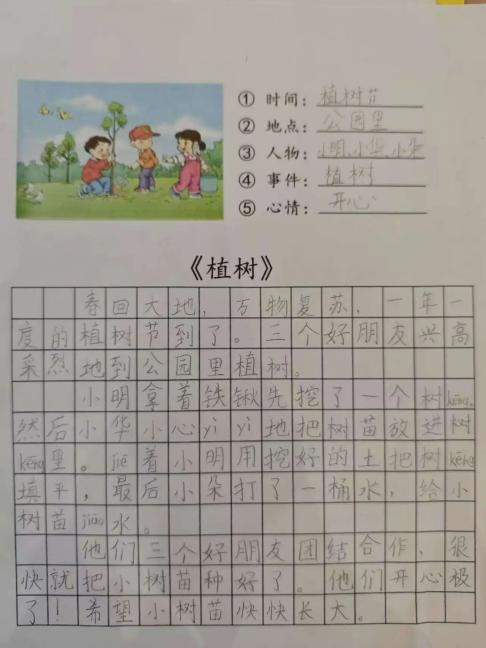 ① 时间：植树节
② 地点：公园里
③ 人物：小明、小华、小朵
④ 事件：植树
⑤ 心情：开心
《植树》
春回大地，万物复苏，一年一
度的植树节到了。三个好朋友兴高
采烈地到公园里植树。
小明拿着铁锹先挖了一个树kēng，
然后小华小心yì yì地把树苗放进树
kēng里。jiē着小明用挖好的土把树kēng
填平，最后小朵打了一桶水，给小
树苗jiāo水。
他们三个好朋友团结合作，很
快就把小树苗种好了。他们开心极
了！希望小树苗快快长大。